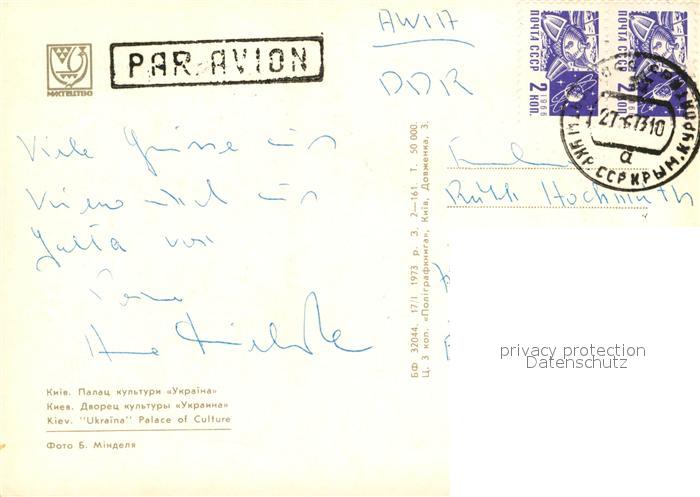 АВИА
DDR
PAR AVION
МИСТЕЦТВО
ПОЧТА СССР
2 КОП.
1966
ПОЧТА СССР
2 КОП.
1966
27-6-73 10
а
УКР. ССР КРЫМ. КУРОРТ
Viele Grüsse aus
aus
Jalta von
Frau
Ruth Hochmuth
БФ 32044. 17/I 1973 р. З. 2—161. Т. 50 000.
Ц. 3 коп. «Поліграфкнига», Київ, Довженка, 3.
privacy protection
Datenschutz
Київ. Палац культури «Україна»
Киев. Дворец культуры «Украина»
Kiev. "Ukraïna" Palace of Culture
Фото Б. Мінделя